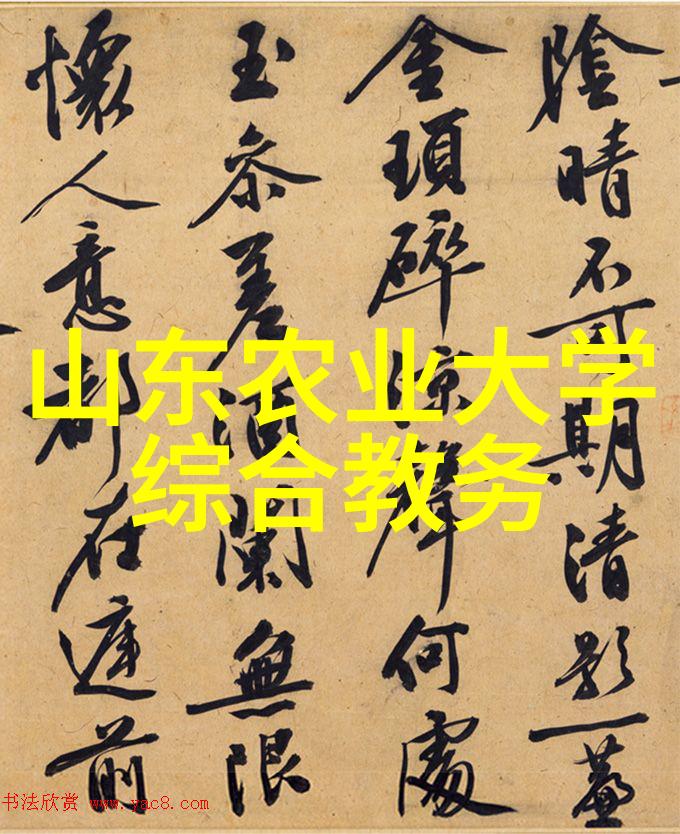 陰晴不可期清影一簾
金瑣碎涼聲何處
玉參差酒闌無限
懷人意都在庭前
山东农业大学
综合教务
书法欣赏 www.yac8.com